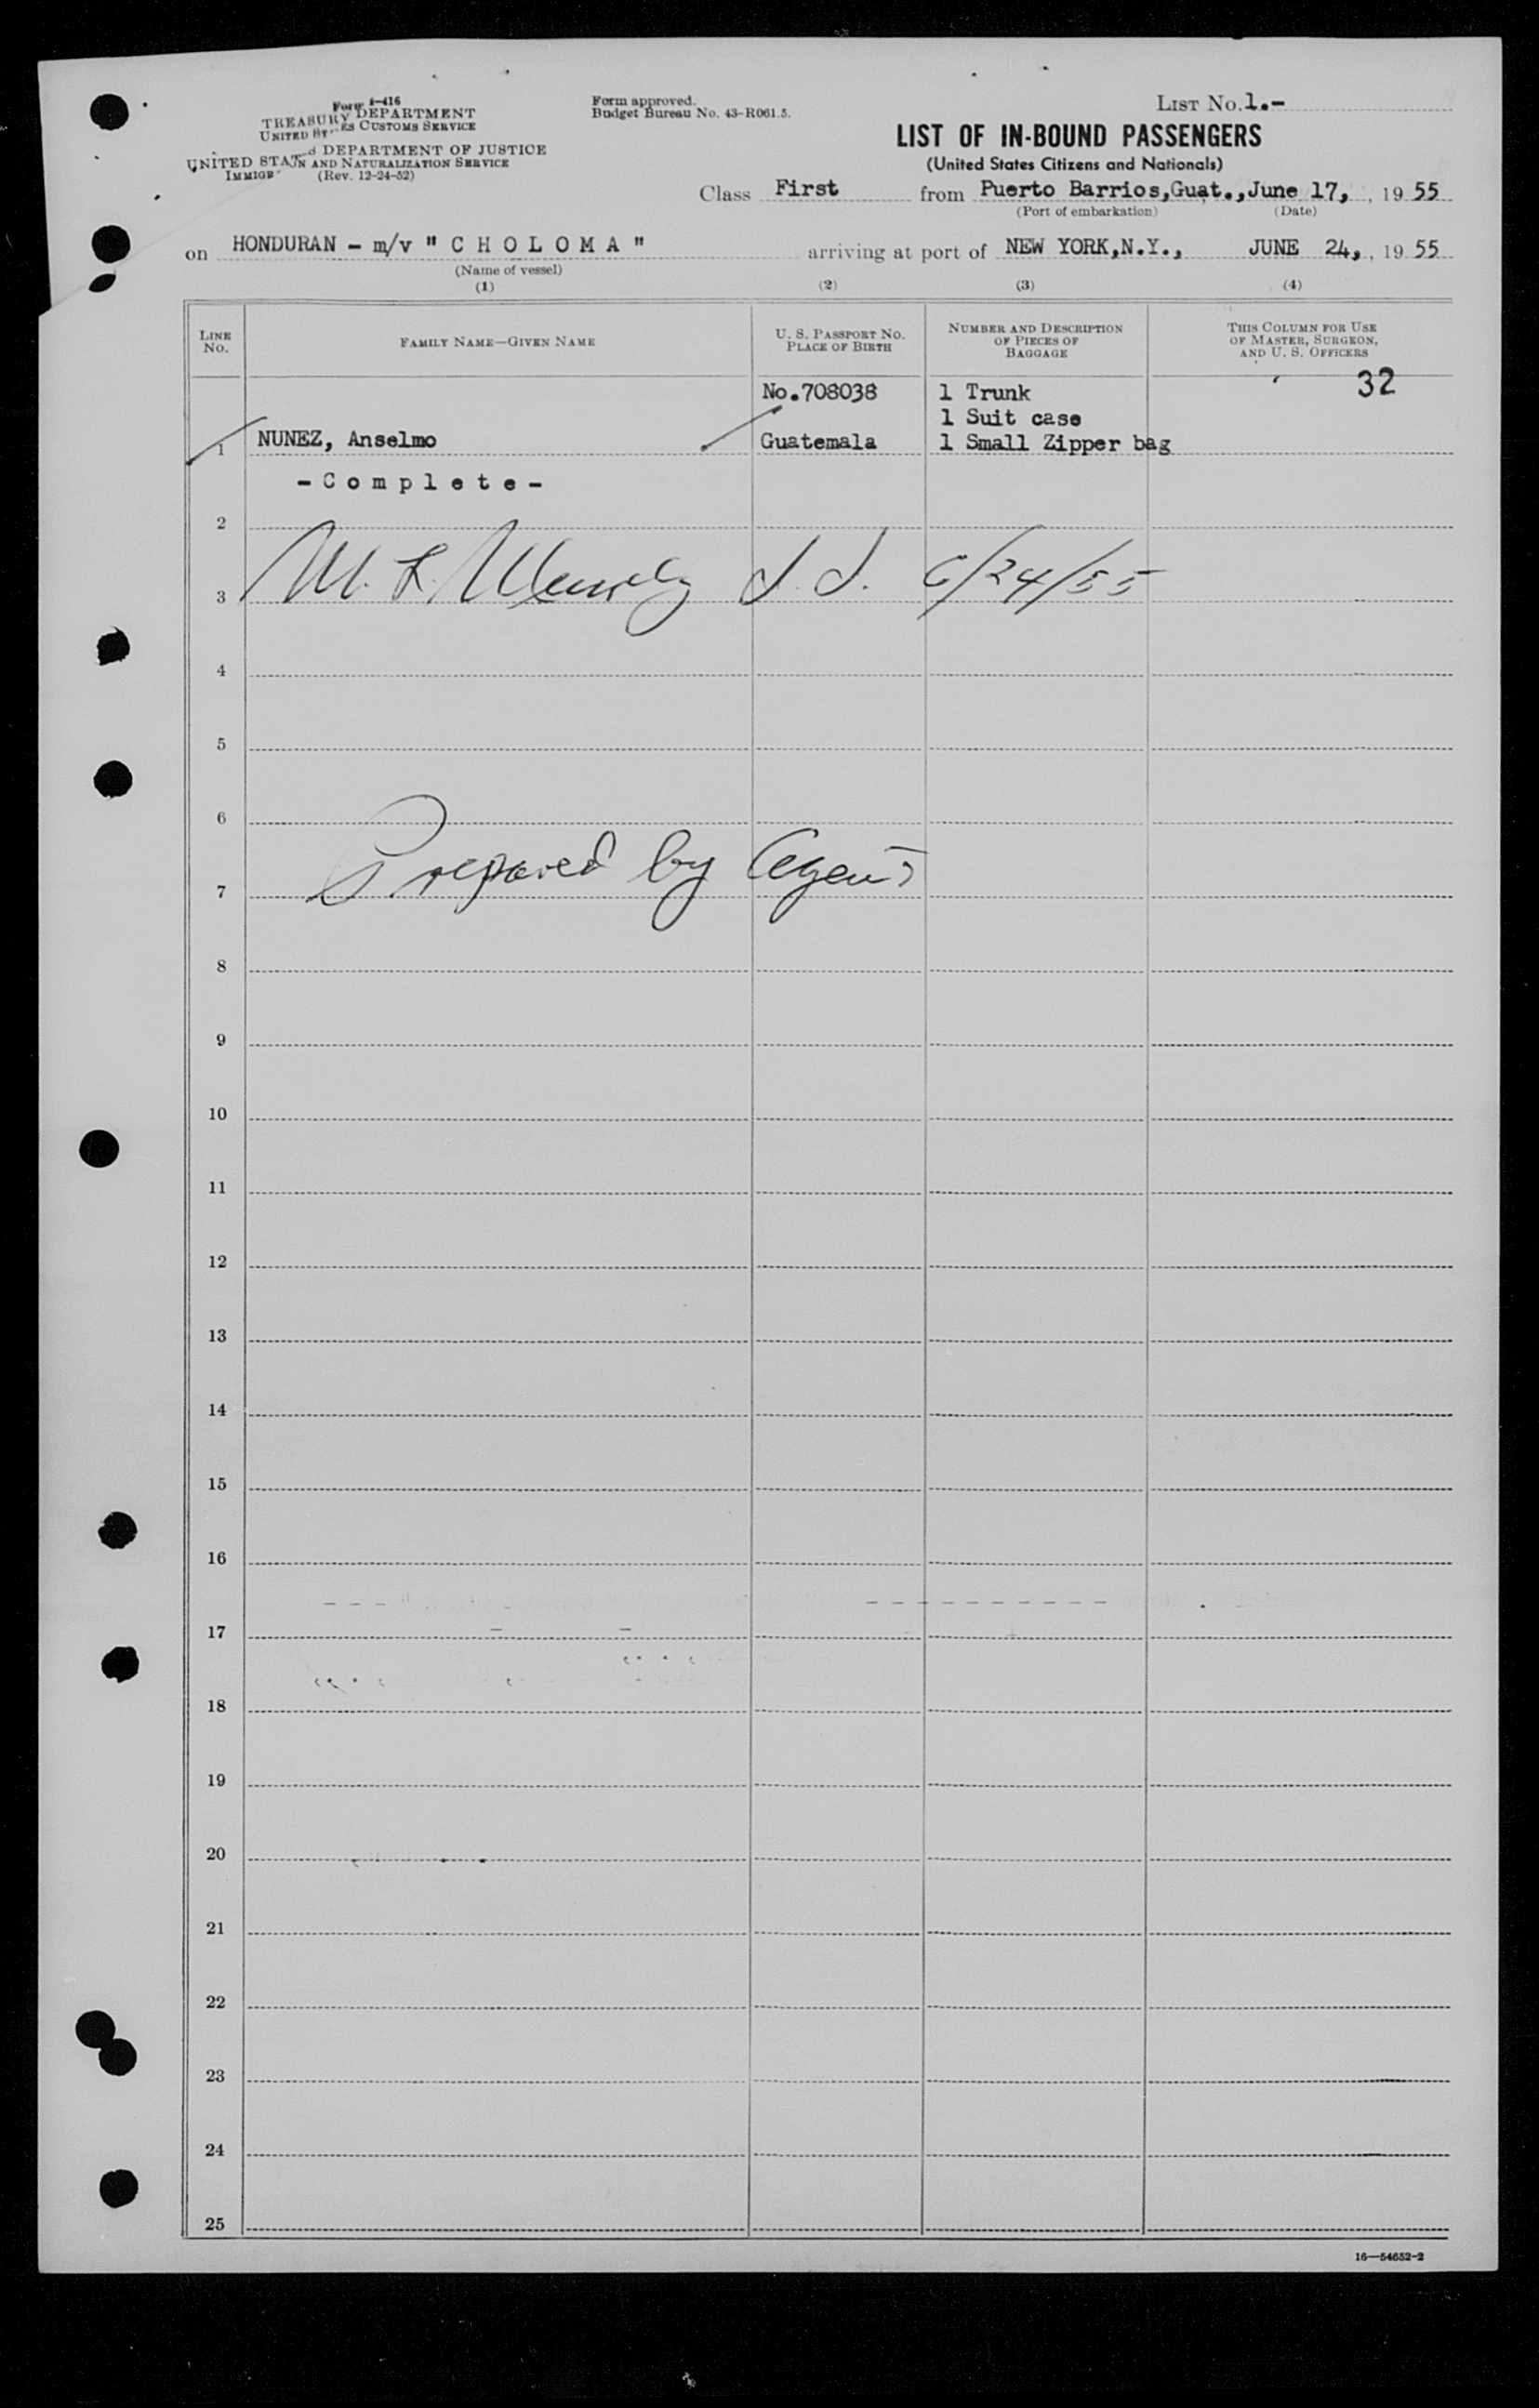 Form I-416
TREASURY DEPARTMENT
UNITED STATES CUSTOMS SERVICE
UNITED STATES DEPARTMENT OF JUSTICE
IMMIGRATION AND NATURALIZATION SERVICE
(Rev. 12-24-52)
Form approved.
Budget Bureau No. 43-R061.5.
LIST No. 1.-
LIST OF IN-BOUND PASSENGERS
(United States Citizens and Nationals)
Class First from Puerto Barrios,Guat.,June 17, , 19 55
(Port of embarkation) (Date)
on HONDURAN - m/v " C H O L O M A " arriving at port of NEW YORK,N.Y., JUNE 24, , 19 55
(Name of vessel)
(1) (2) (3) (4)
LINE NO. FAMILY NAME—GIVEN NAME U. S. PASSPORT NO. PLACE OF BIRTH NUMBER AND DESCRIPTION OF PIECES OF BAGGAGE THIS COLUMN FOR USE OF MASTER, SURGEON, AND U. S. OFFICERS
No.708038 1 Trunk 32
1 Suit case
1 NUNEZ, Anselmo Guatemala 1 Small Zipper bag
- C o m p l e t e -
2
3 M. L. 6/24/55
4
5
6
7 Prepared by Agent
8
9
10
11
12
13
14
15
16
17
18
19
20
21
22
23
24
25
16—54652-2